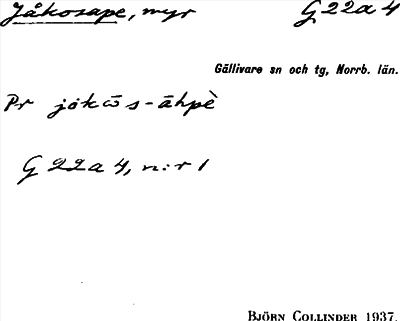 Jåkosape, myr G 22a 4
Gällivare sn och tg, Norrb. län.
Pr jåkō̬s-āhpè
G 22a 4, n:r 1
BJÖRN COLLINDER 1937.